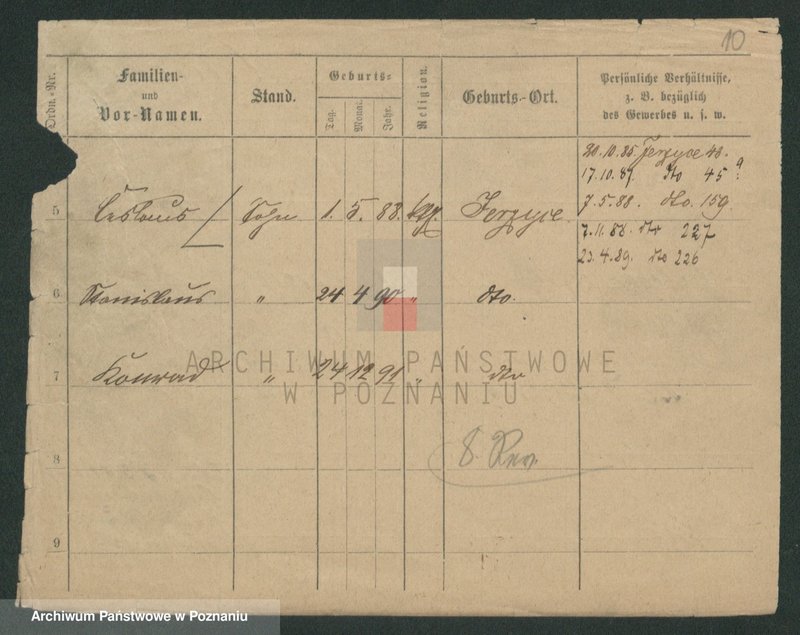 10
Ordn.-Nr.
Familien-
und
Vor-Namen.
Stand.
Geburts-
Tag.
Monat.
Jahr.
Religion.
Geburts-Ort.
Persönliche Verhältnisse,
z. B. bezüglich
des Gewerbes u. s. w.
20.10.85. Jerzyce 48.
17.10.87. dto 45a.
7.5.88. dto. 159.
7.11.88. dto 227
23.4.89. dto 226
5 Ceslaus Sohn 1. 5. 88. kath. Jerzyce.
6 Stanislaus " 24 4 90 " dto.
7 Konrad " 24 12 91 " dto
8 8. Rev.
9
ARCHIWUM PAŃSTWOWE
W POZNANIU
Archiwum Państwowe w Poznaniu